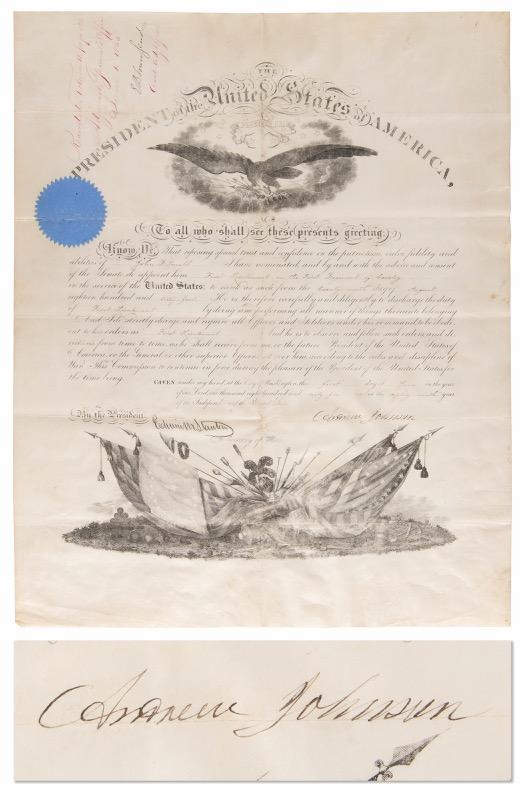 THE
PRESIDENT of the United States of AMERICA,
To all who shall see these presents greeting.
Know Ye, That reposing special trust and confidence in the patriotism, valor, fidelity and
abilities of I have nominated, and by and with the advice and consent
of the Senate do appoint him First Lieutenant in the First Regiment of Cavalry
in the service of the United States: to rank as such from the day of August
eighteen hundred and sixty four. He is therefore carefully and diligently to discharge the duty
of First Lieutenant by doing and performing all manner of things thereunto belonging.
And I do strictly charge and require all Officers and Soldiers under his command to be obedi-
ent to his orders as First Lieutenant And he is to observe and follow such orders and di-
rections from time to time as he shall receive from me, or the future President of the United States of
America, or the General or other superior Officers set over him, according to the rules and discipline of
War. This Commission to continue in force during the pleasure of the President of the United States for
the time being.
GIVEN under my hand at the City of Washington this first day of June in the year
of our Lord one thousand eight hundred and sixty five and in the eighty ninth year
of the Independence of the United States.
By the President, Andrew Johnson
Edwin M Stanton
Secretary of War
Andrew Johnson